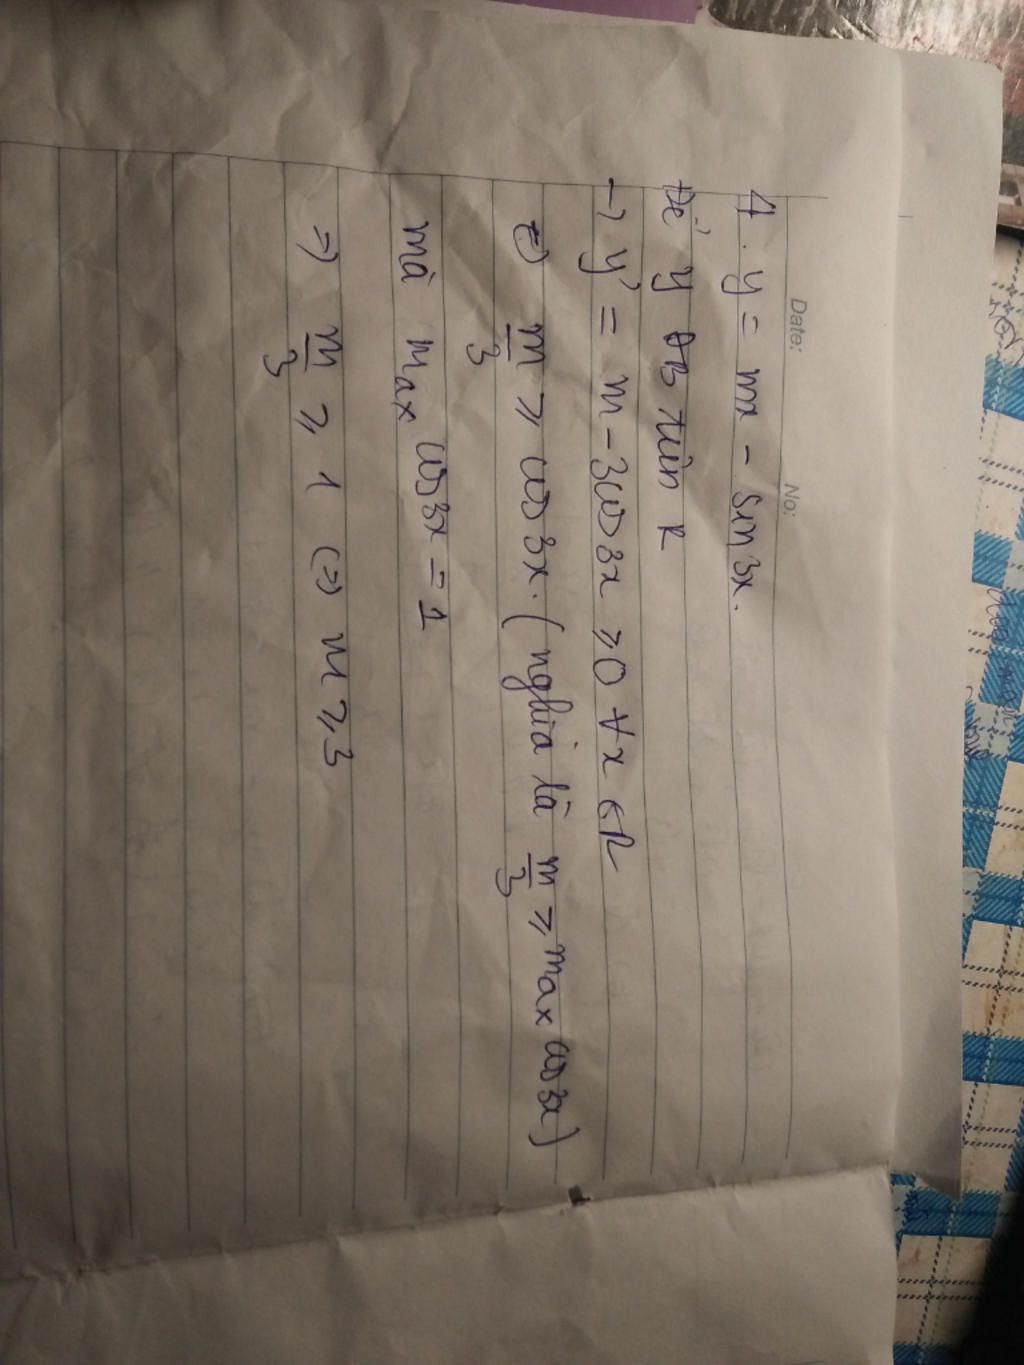 Date: No:
1. y = mx - sin 3x.
Để y ĐB trên R
→ y' = m - 3cos 3x ≥ 0 ∀x ∈ R
⇔ m/3 ≥ cos 3x. (nghĩa là m/3 ≥ max cos 3x)
mà max cos 3x = 1
⇒ m/3 ≥ 1 ⇔ m ≥ 3